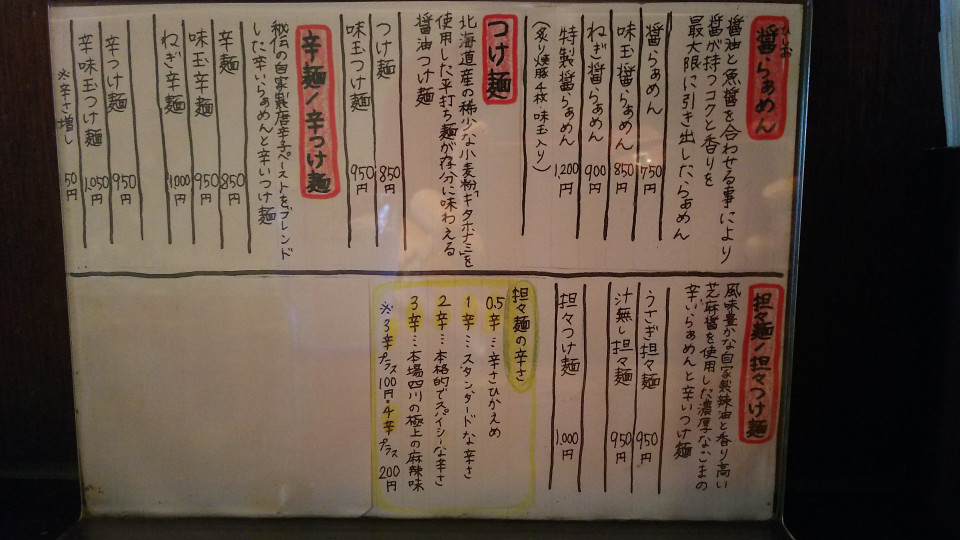 醤らぁめん
ひしお
醤油と魚醤を合わせる事により
醤が持つコクと香りを
最大限に引き出したらぁめん
醤らぁめん 750円
味玉醤らぁめん 850円
ねぎ醤らぁめん 900円
特製醤らぁめん 1,200円
(炙り燻豚4枚 味玉入り)
つけ麺
北海道産の稀少な小麦粉「キタホナミ」を
使用した平打ち麺が存分に味わえる
醤油つけ麺
つけ麺 850円
味玉つけ麺 950円
辛麺/辛つけ麺
秘伝の自家製唐辛子ペーストをブレンド
した辛いらぁめんと辛いつけ麺
辛麺 850円
味玉辛麺 950円
ねぎ辛麺 1,000円
辛つけ麺 950円
辛味玉つけ麺 1,050円
※辛さ増し 50円
担々麺/担々つけ麺
風味豊かな自家製辣油と香り高い
芝麻醤を使用した濃厚なごまの
辛いらぁめんと辛いつけ麺
うさぎ担々麺 950円
汁無し担々麺 950円
担々つけ麺 1,000円
担々麺の辛さ
0.5辛…辛さひかえめ
1辛…スタンダードな辛さ
2辛…本格的でスパイシーな辛さ
3辛…本場四川の極上の麻辣味
※3辛プラス100円・4辛プラス200円